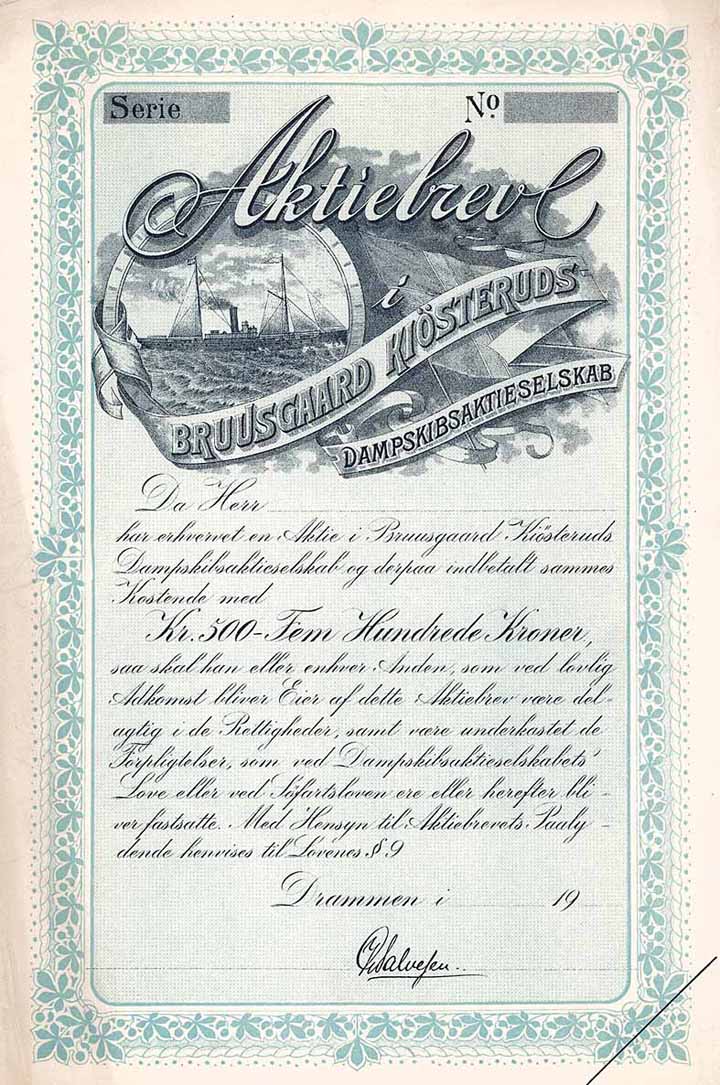 Serie No.
Aktiebrev
i
BRUUSGAARD KIÖSTERUDS
DAMPSKIBSAKTIESELSKAB
Da Herr
har erhvervet en Aktie i Bruusgaard Kiösteruds
Dampskibsaktieselskab og derpaa indbetalt sammes
Kostende med
Kr. 500 - Fem Hundrede Kroner,
saa skal han eller enhver Anden, som ved lovlig
Adkomst bliver Eier af dette Aktiebrev være del-
agtig i de Rettigheder, samt være underkastet de
Forpligtelser, som ved Dampskibsaktieselskabets'
Love eller ved Söfartsloven ere eller herefter bli-
ver fastsatte. Med Hensyn til Aktiebrevets Paaly-
dende henvises til Lovenes § 9
Drammen i 19